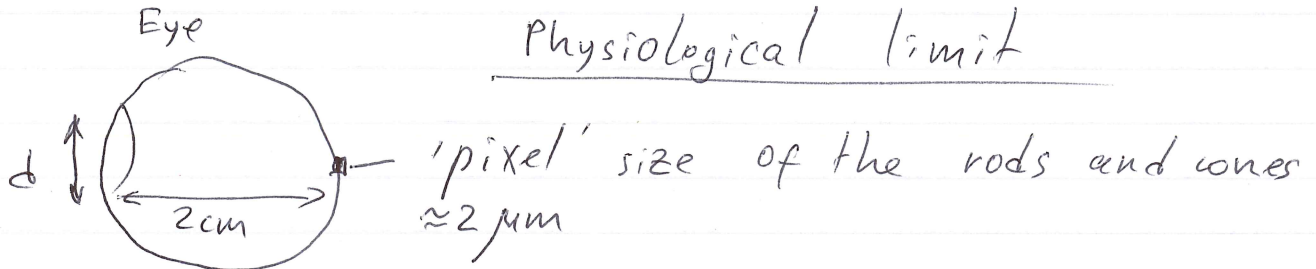 Eye
Physiological limit
d
2cm
'pixel' size of the rods and cones
≈2 μm